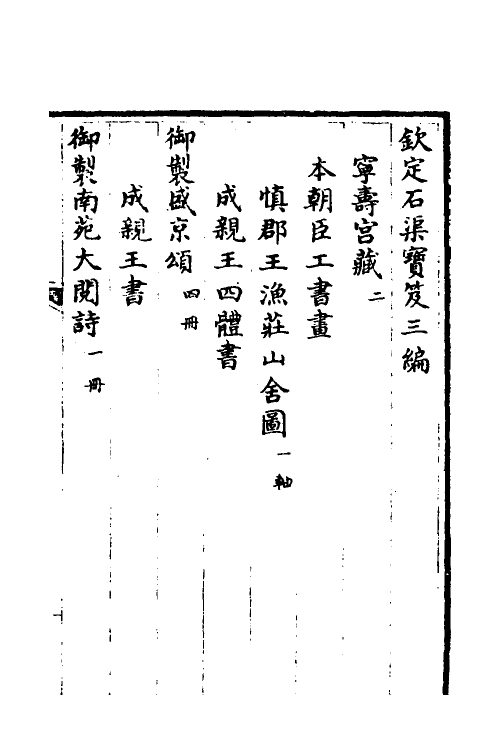 欽定石渠寶笈三編
寧壽宮藏二
本朝臣工書畫
慎郡王漁莊山舍圖一軸
成親王四體書
御製盛京頌四冊
成親王書
御製南苑大閱詩一冊